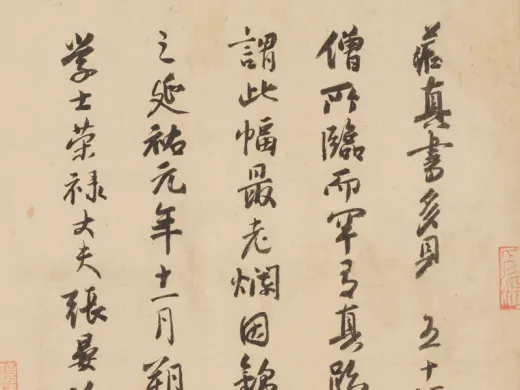 藏真書多見 五十
僧所臨而罕有真跡
謂此幅最老爛因錦
之延祐元年十一月朔
學士榮祿大夫張晏